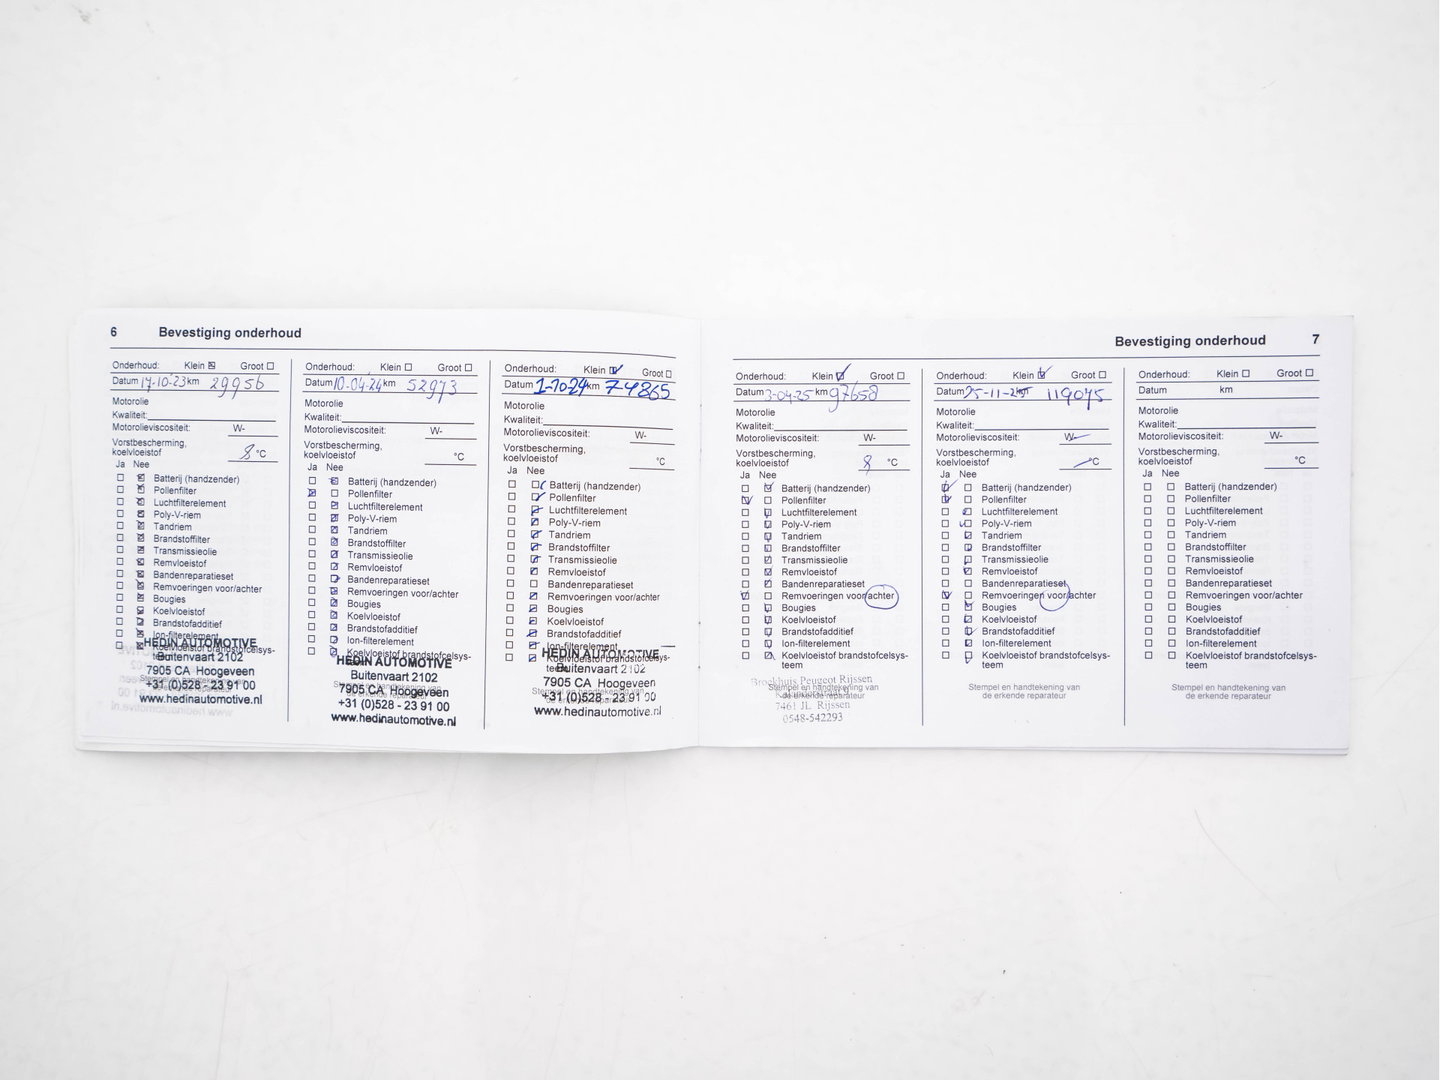 6 Bevestiging onderhoud
Onderhoud: Klein ☒ Groot ☐
Datum 17-10-23 km 29956
Motorolie
Kwaliteit:
Motorolieviscositeit: W-
Vorstbescherming,
koelvloeistof 8 °C
Ja Nee
Batterij (handzender)
Pollenfilter
Luchtfilterelement
Poly-V-riem
Tandriem
Brandstoffilter
Transmissieolie
Remvloeistof
Bandenreparatieset
Remvoeringen voor/achter
Bougies
Koelvloeistof
Brandstofadditief
Ion-filterelement
Koelvloeistof brandstofcelsys-
HEDIN AUTOMOTIVE
Buitenvaart 2102
7905 CA Hoogeveen
+31 (0)528 - 23 91 00
www.hedinautomotive.nl
Onderhoud: Klein ☐ Groot ☐
Datum 10-04-24 km 52973
Motorolie
Kwaliteit:
Motorolieviscositeit: W-
Vorstbescherming,
koelvloeistof °C
Ja Nee
Batterij (handzender)
Pollenfilter
Luchtfilterelement
Poly-V-riem
Tandriem
Brandstoffilter
Transmissieolie
Remvloeistof
Bandenreparatieset
Remvoeringen voor/achter
Bougies
Koelvloeistof
Brandstofadditief
Ion-filterelement
Koelvloeistof brandstofcelsys-
HEDIN AUTOMOTIVE
Buitenvaart 2102
Stempel en handtekening van
7905 CA Hoogeveen
de erkende reparateur
+31 (0)528 - 23 91 00
www.hedinautomotive.nl
Onderhoud: Klein ☑ Groot ☐
Datum 1-10-24 km 74865
Motorolie
Kwaliteit:
Motorolieviscositeit: W-
Vorstbescherming,
koelvloeistof °C
Ja Nee
Batterij (handzender)
Pollenfilter
Luchtfilterelement
Poly-V-riem
Tandriem
Brandstoffilter
Transmissieolie
Remvloeistof
Bandenreparatieset
Remvoeringen voor/achter
Bougies
Koelvloeistof
Brandstofadditief
Ion-filterelement
Koelvloeistof brandstofcelsys-
HEDIN AUTOMOTIVE
Buitenvaart 2102
7905 CA Hoogeveen
Stempel en handtekening van
de erkende reparateur
+31 (0)528 - 23 91 00
www.hedinautomotive.nl
Bevestiging onderhoud 7
Onderhoud: Klein ☑ Groot ☐
Datum 3-04-25 km 97658
Motorolie
Kwaliteit:
Motorolieviscositeit: W-
Vorstbescherming,
koelvloeistof 8 °C
Ja Nee
Batterij (handzender)
Pollenfilter
Luchtfilterelement
Poly-V-riem
Tandriem
Brandstoffilter
Transmissieolie
Remvloeistof
Bandenreparatieset
Remvoeringen voor/achter
Bougies
Koelvloeistof
Brandstofadditief
Ion-filterelement
Koelvloeistof brandstofcelsys-
teem
Broekhuis Peugeot Rijssen
Stempel en handtekening van
de erkende reparateur
7461 JL Rijssen
0548-542293
Onderhoud: Klein ☑ Groot ☐
Datum 25-11-2 119045
Motorolie
Kwaliteit:
Motorolieviscositeit: W-
Vorstbescherming,
koelvloeistof °C
Ja Nee
Batterij (handzender)
Pollenfilter
Luchtfilterelement
Poly-V-riem
Tandriem
Brandstoffilter
Transmissieolie
Remvloeistof
Bandenreparatieset
Remvoeringen voor/achter
Bougies
Koelvloeistof
Brandstofadditief
Ion-filterelement
Koelvloeistof brandstofcelsys-
teem
Stempel en handtekening van
de erkende reparateur
Onderhoud: Klein ☐ Groot ☐
Datum km
Motorolie
Kwaliteit:
Motorolieviscositeit: W-
Vorstbescherming,
koelvloeistof °C
Ja Nee
Batterij (handzender)
Pollenfilter
Luchtfilterelement
Poly-V-riem
Tandriem
Brandstoffilter
Transmissieolie
Remvloeistof
Bandenreparatieset
Remvoeringen voor/achter
Bougies
Koelvloeistof
Brandstofadditief
Ion-filterelement
Koelvloeistof brandstofcelsys-
teem
Stempel en handtekening van
de erkende reparateur